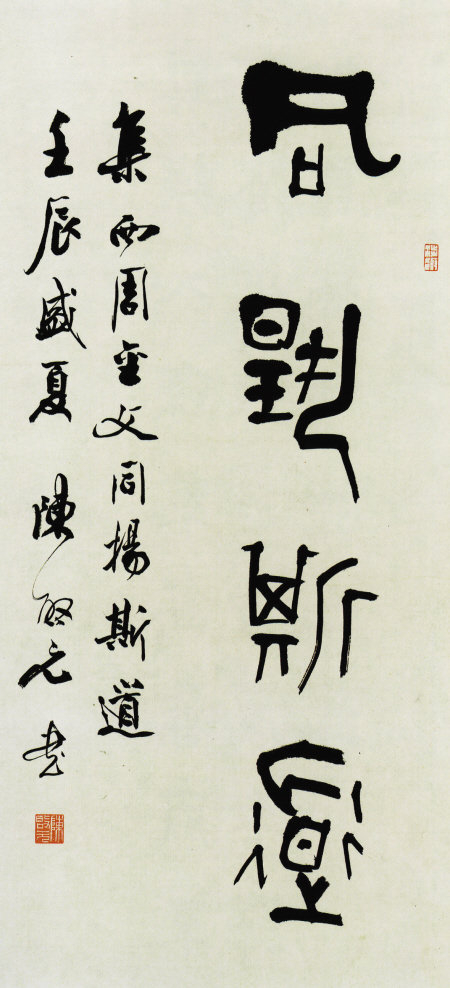 同揚斯道
集西周金文同揚斯道
壬辰盛夏 陳啟元書